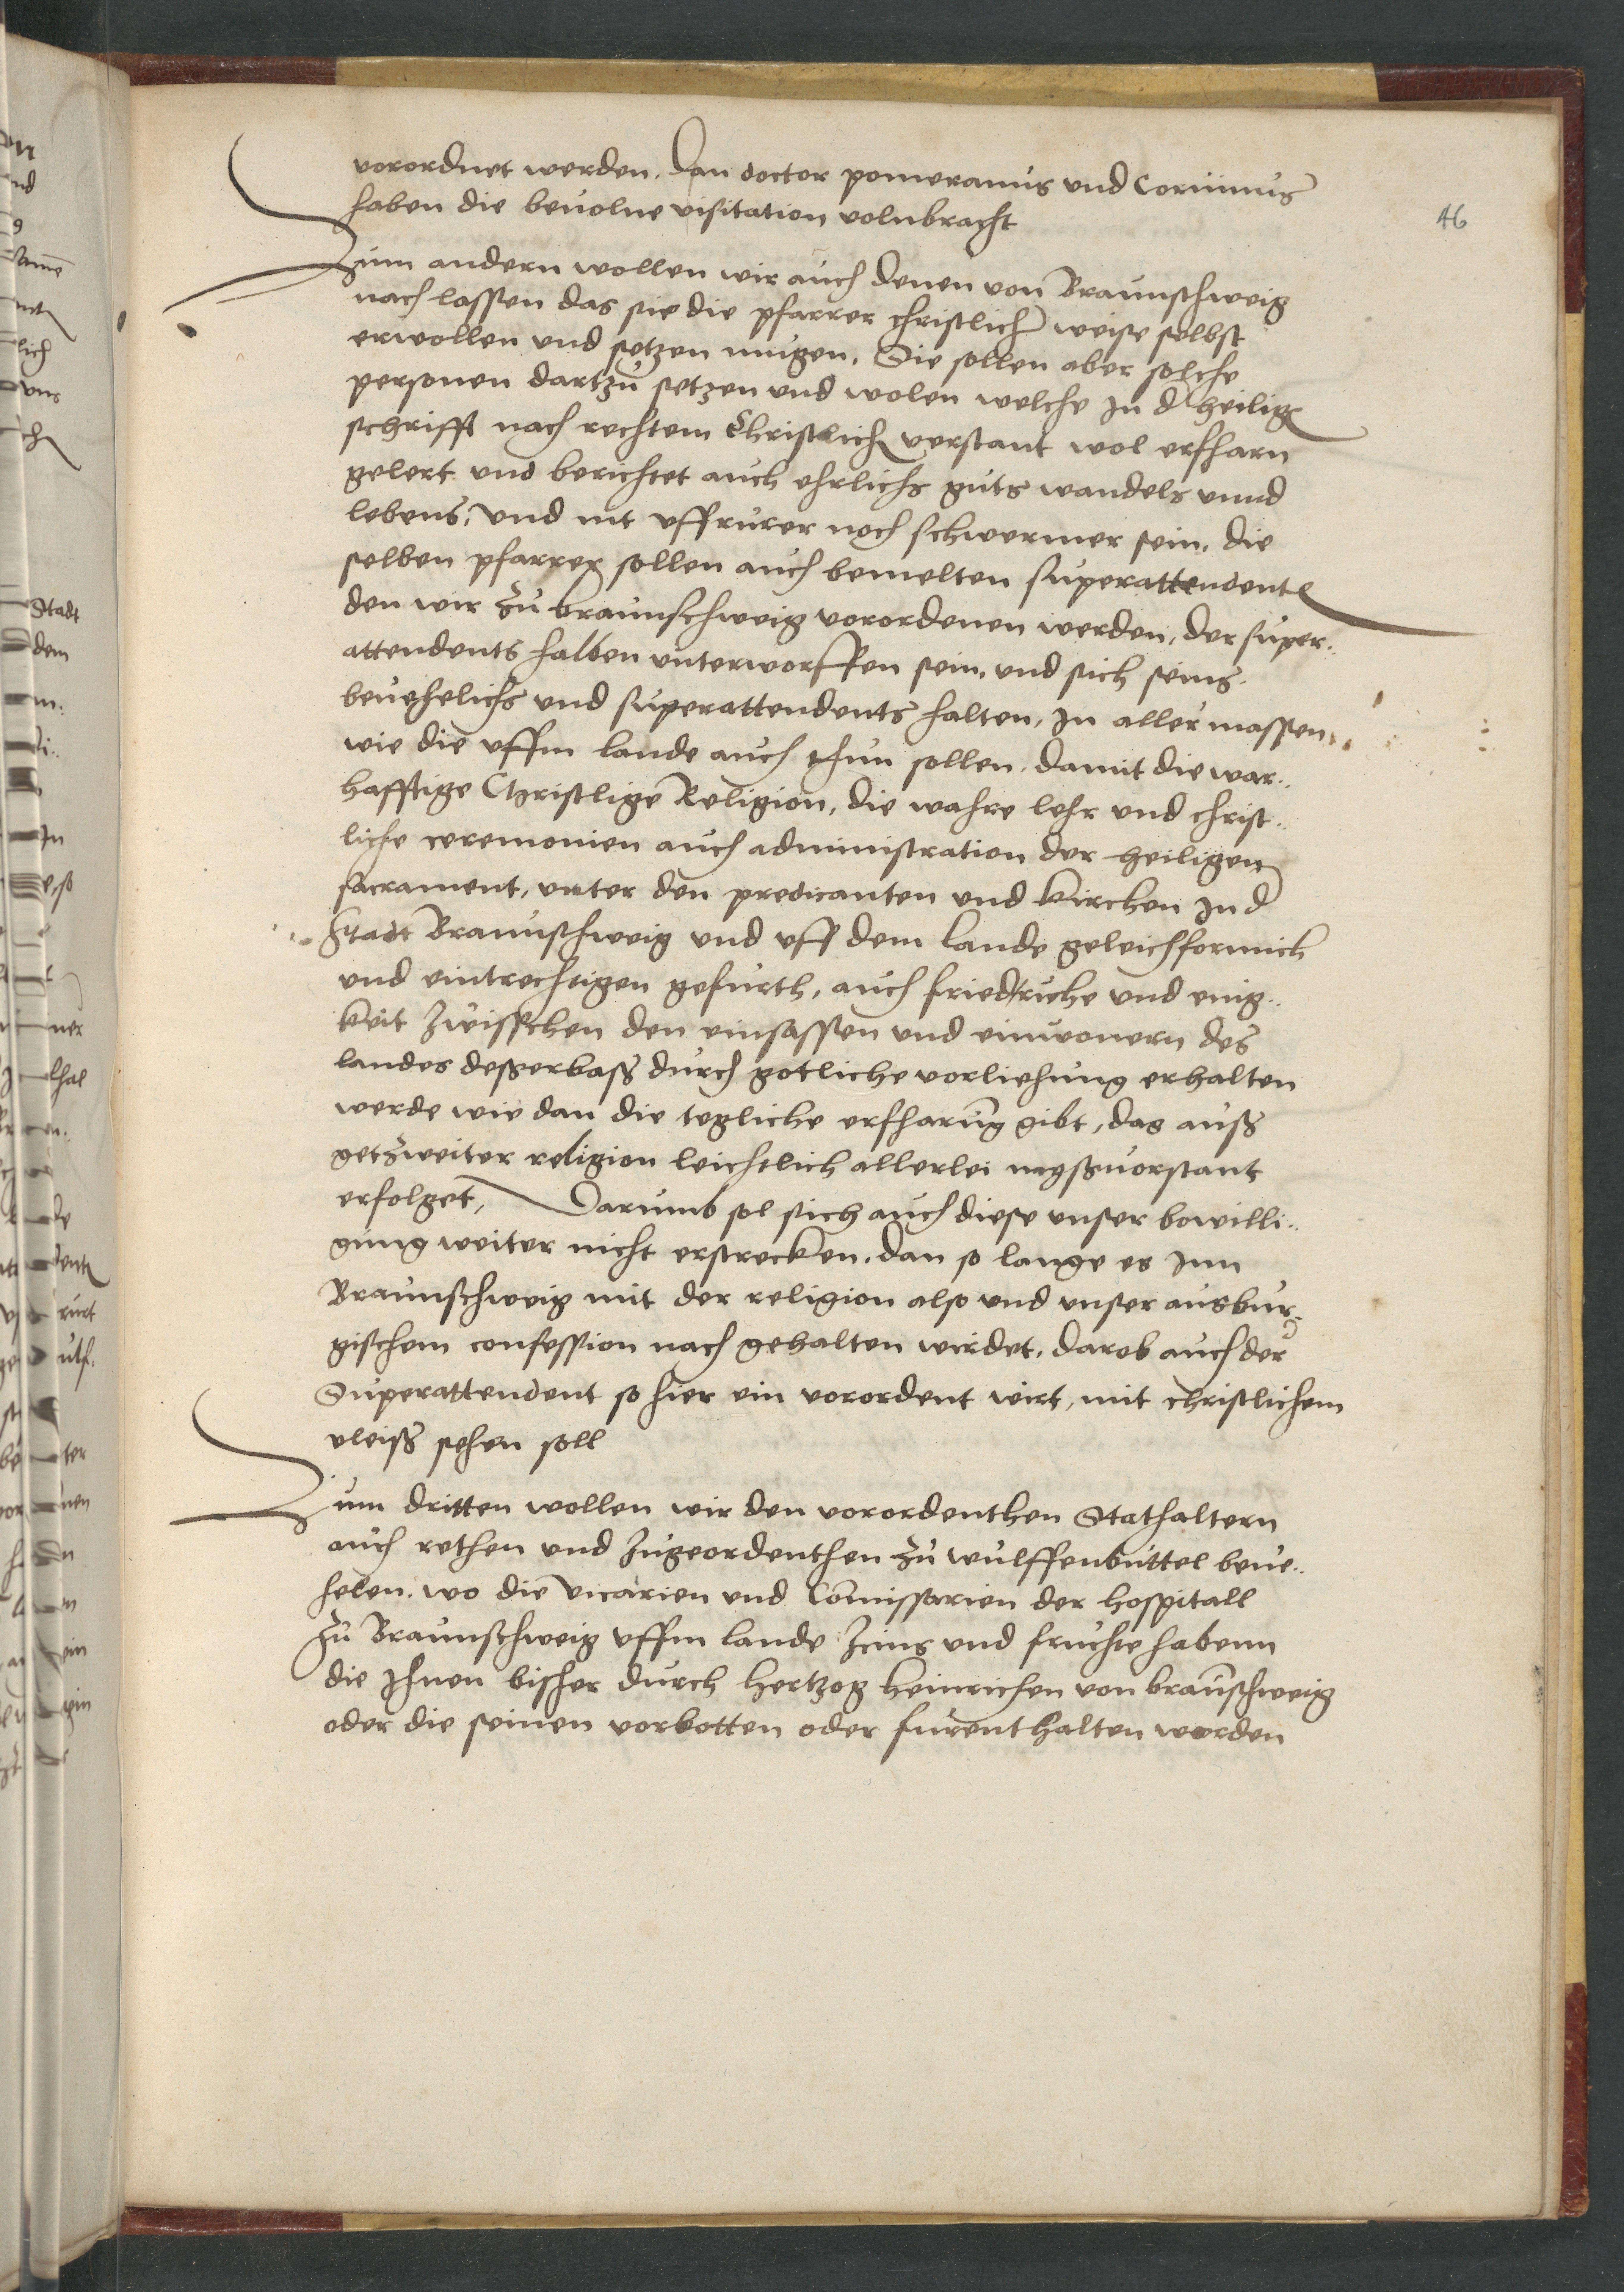 vorordnet werden. Dan doctor pomeranus und Corvinus
haben die bevolne visitation volnbracht
46
Zum andern wollen wir auch denen von Braunschweig
nach lassen das sie die pfarrer christlicher weise selbst
erwollen und setzen mugen. Sie sollen aber solche
personen dartzu setzen und wolen welche In d heilig
schrifft nach rechtem Christlich verstant wol erfharn
gelert und berichtet auch ehrlichs guts wandels unnd
lebens, und nit uffrurer noch schwermer sein. die
selben pfarrer sollen auch bemelten superattendent
den wir zu braunschweig vorordenen werden, der super..
attendents halben unterworffen sein, und sich seins
bevehelichs und superattendents halten, In aller massen
wie die uffm lande auch thun sollen. damit die war..
hafftige Christlige Religion, die wahre lehr und christ..
liche ceremonien auch administration der heiligen
sacrament, unter den predicanten und kirchen In d
Stadt Braunschweig und uff dem lande geleichformich
und eintrechtigen gefurth, auch friedt ruhe und enig..
keit zwisschen den einsassen und einwonern des
landes desserbass durch gotliche vorliehung erhalten
werde wie dan die tegliche erfharung gibt, das auß
getzweiter religion leichtlich allerlei myßvorstant
erfolget, Darumb sol sich auch diese unser bewilli..
gung weiter nicht erstrecken. dan so lange es Inn
Braunschweig mit der religion also und unser ausbur..
gischem confession nach gehalten wirdet. darob auch der
Superattendent so hier ein vorordent wirt, mit christlichem
vleiß sehen soll
Zum dritten wollen wir den vorordenthen Stathaltern
auch rethen und zugeordenthen zu wulffenbuttel beve..
helen. wo die vicarien und Comissarien der hospitall
zu Braunschweig uffm lande zcins und fruchte habenn
die Ihnen bisher durch hertzog heinrichen von braunschweig
oder die seinen vorbotten oder furenthalten worden